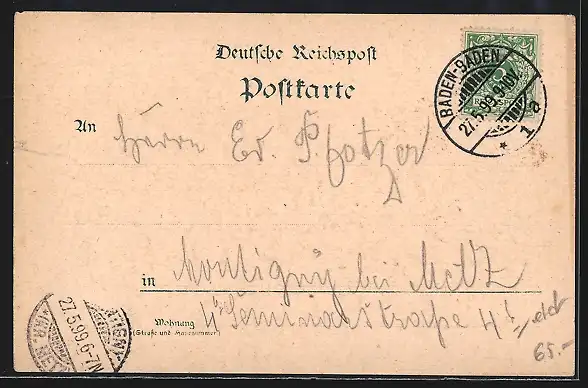 Deutsche Reichspost
Postkarte
BADEN-BADEN
27.5.99.9-10V.
* 1a
An Herrn Ed. Pfotzer
in Montigny bei Metz
Wohnung
(Straße und Hausnummer)
Seminarstraße 4
65.-
27.5.99.6-7N